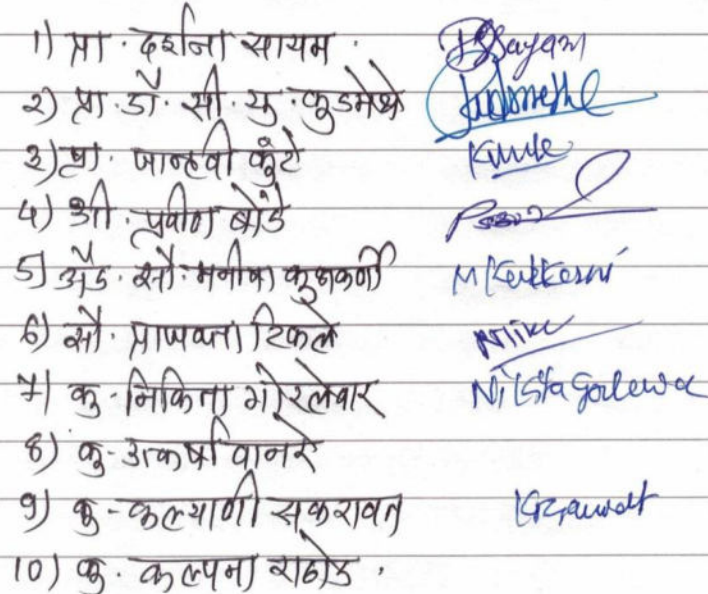 1) प्रा. दर्शना सायम. DSayam
2) प्रा. डॉ. सी. यु. कुडमेथे Kudmethe
3) प्रा. जान्हवी कुंटे Kunte
4) श्री. प्रवीण बोर्डे
5) अॅड. सौ. मनीषा कुळकर्णी MKulkarni
6) सौ. प्राजक्ता टिकले
7) कु. निकिता गोरलेवार Nikita Gorlewar
8) कु. वानरे
9) कु. कल्याणी सकरावत
10) कु. कल्पना राठोड.